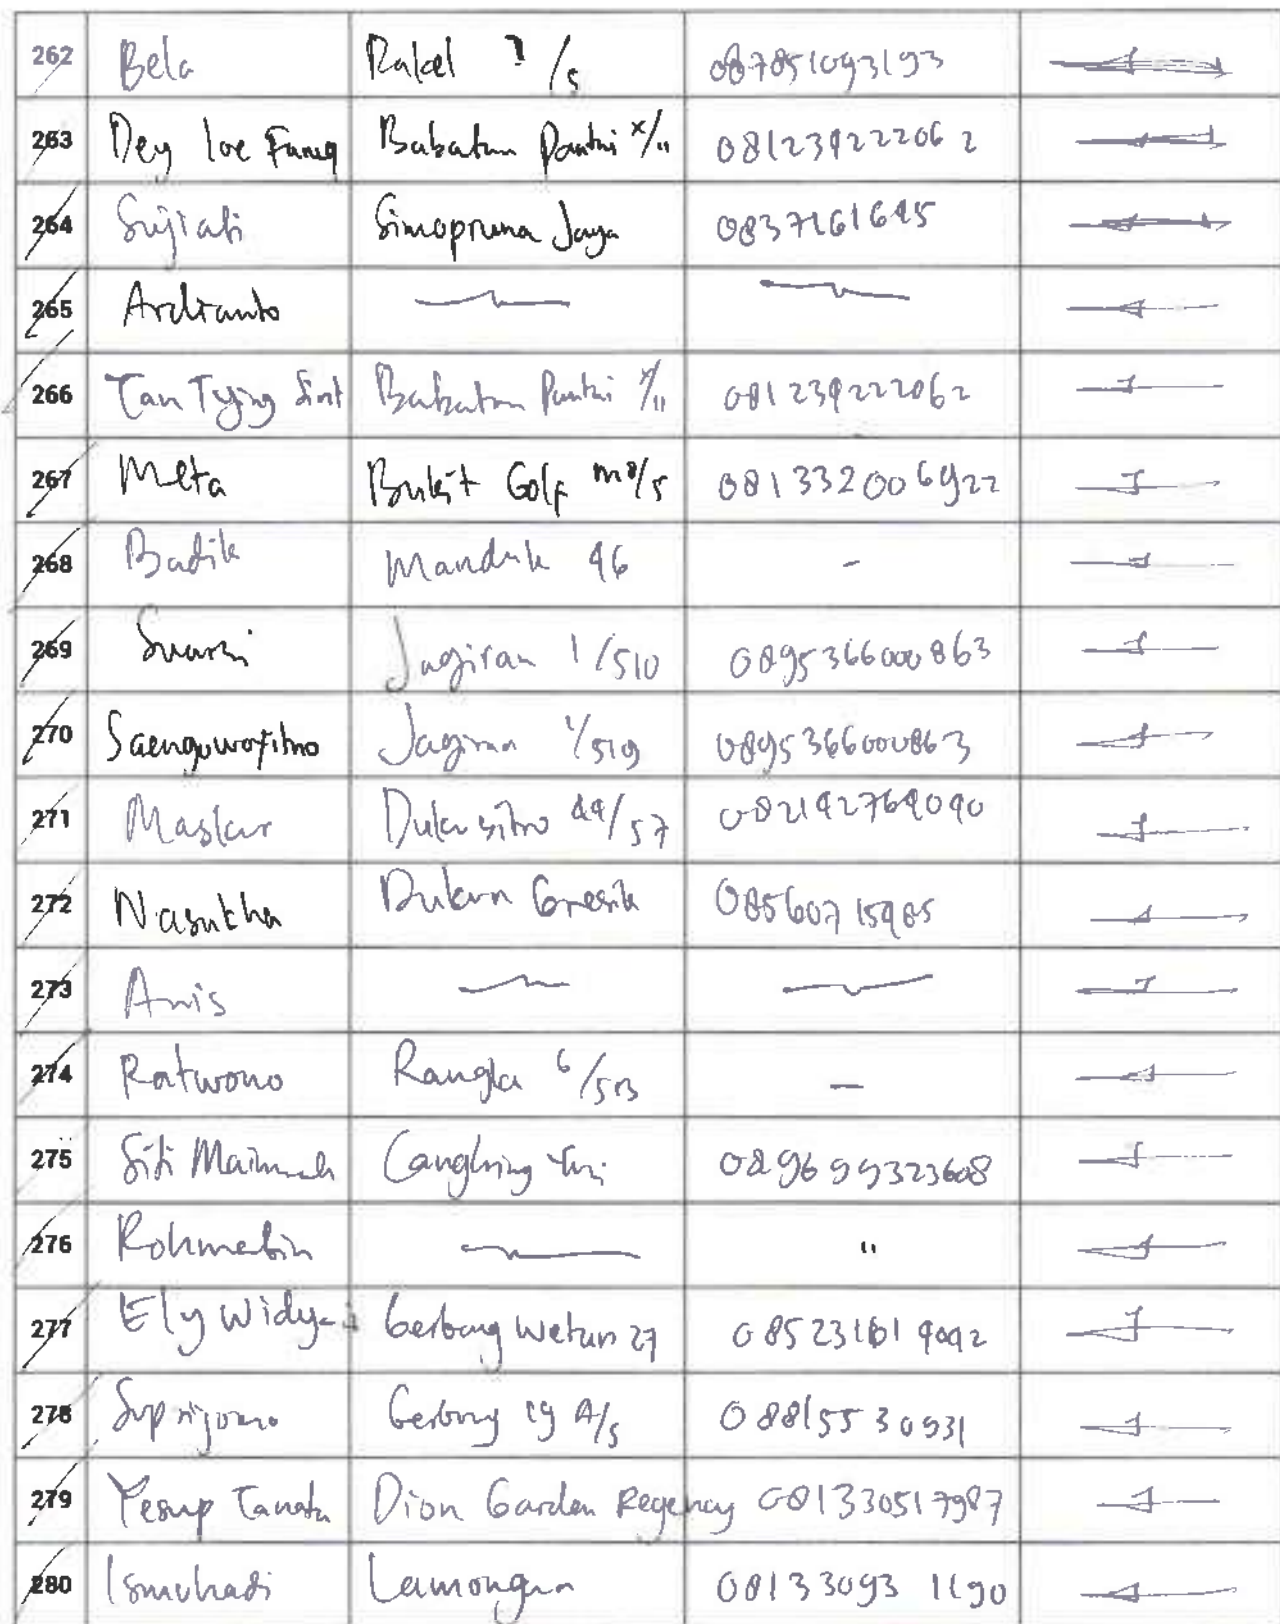 262 Bela Rakel ? /5 087851093193
263 Dey Ioe Fang Babatan Pantai x/11 081239222062
264 Sujiati Simopruna Jaya 0837161645
265 Ardianto
266 Tan Tjing Babatan Pantai x/11 081239222062
267 Meta Bukit Golf m8/5 081332006922
268 Badik Manduk 46 -
269 Suarni Jagiran 1/510 0895366000863
270 Jagiran 1/519 0895366000863
271 Maskur 44/57 082192764040
272 Nasukha Dukun Gresik
273 Anis
274 Ratwono Rangka 6/513 -
275 Siti Maimunah 089699323608
276 Rohmatin "
277 Ely Widya Gerbong Wetan 27
278 Gerbong 19 A/5 08815530931
279 Yesup Tanata Dion Garden Regency 081330517987
280 Ismuhadi Lamongan 08133093 1190